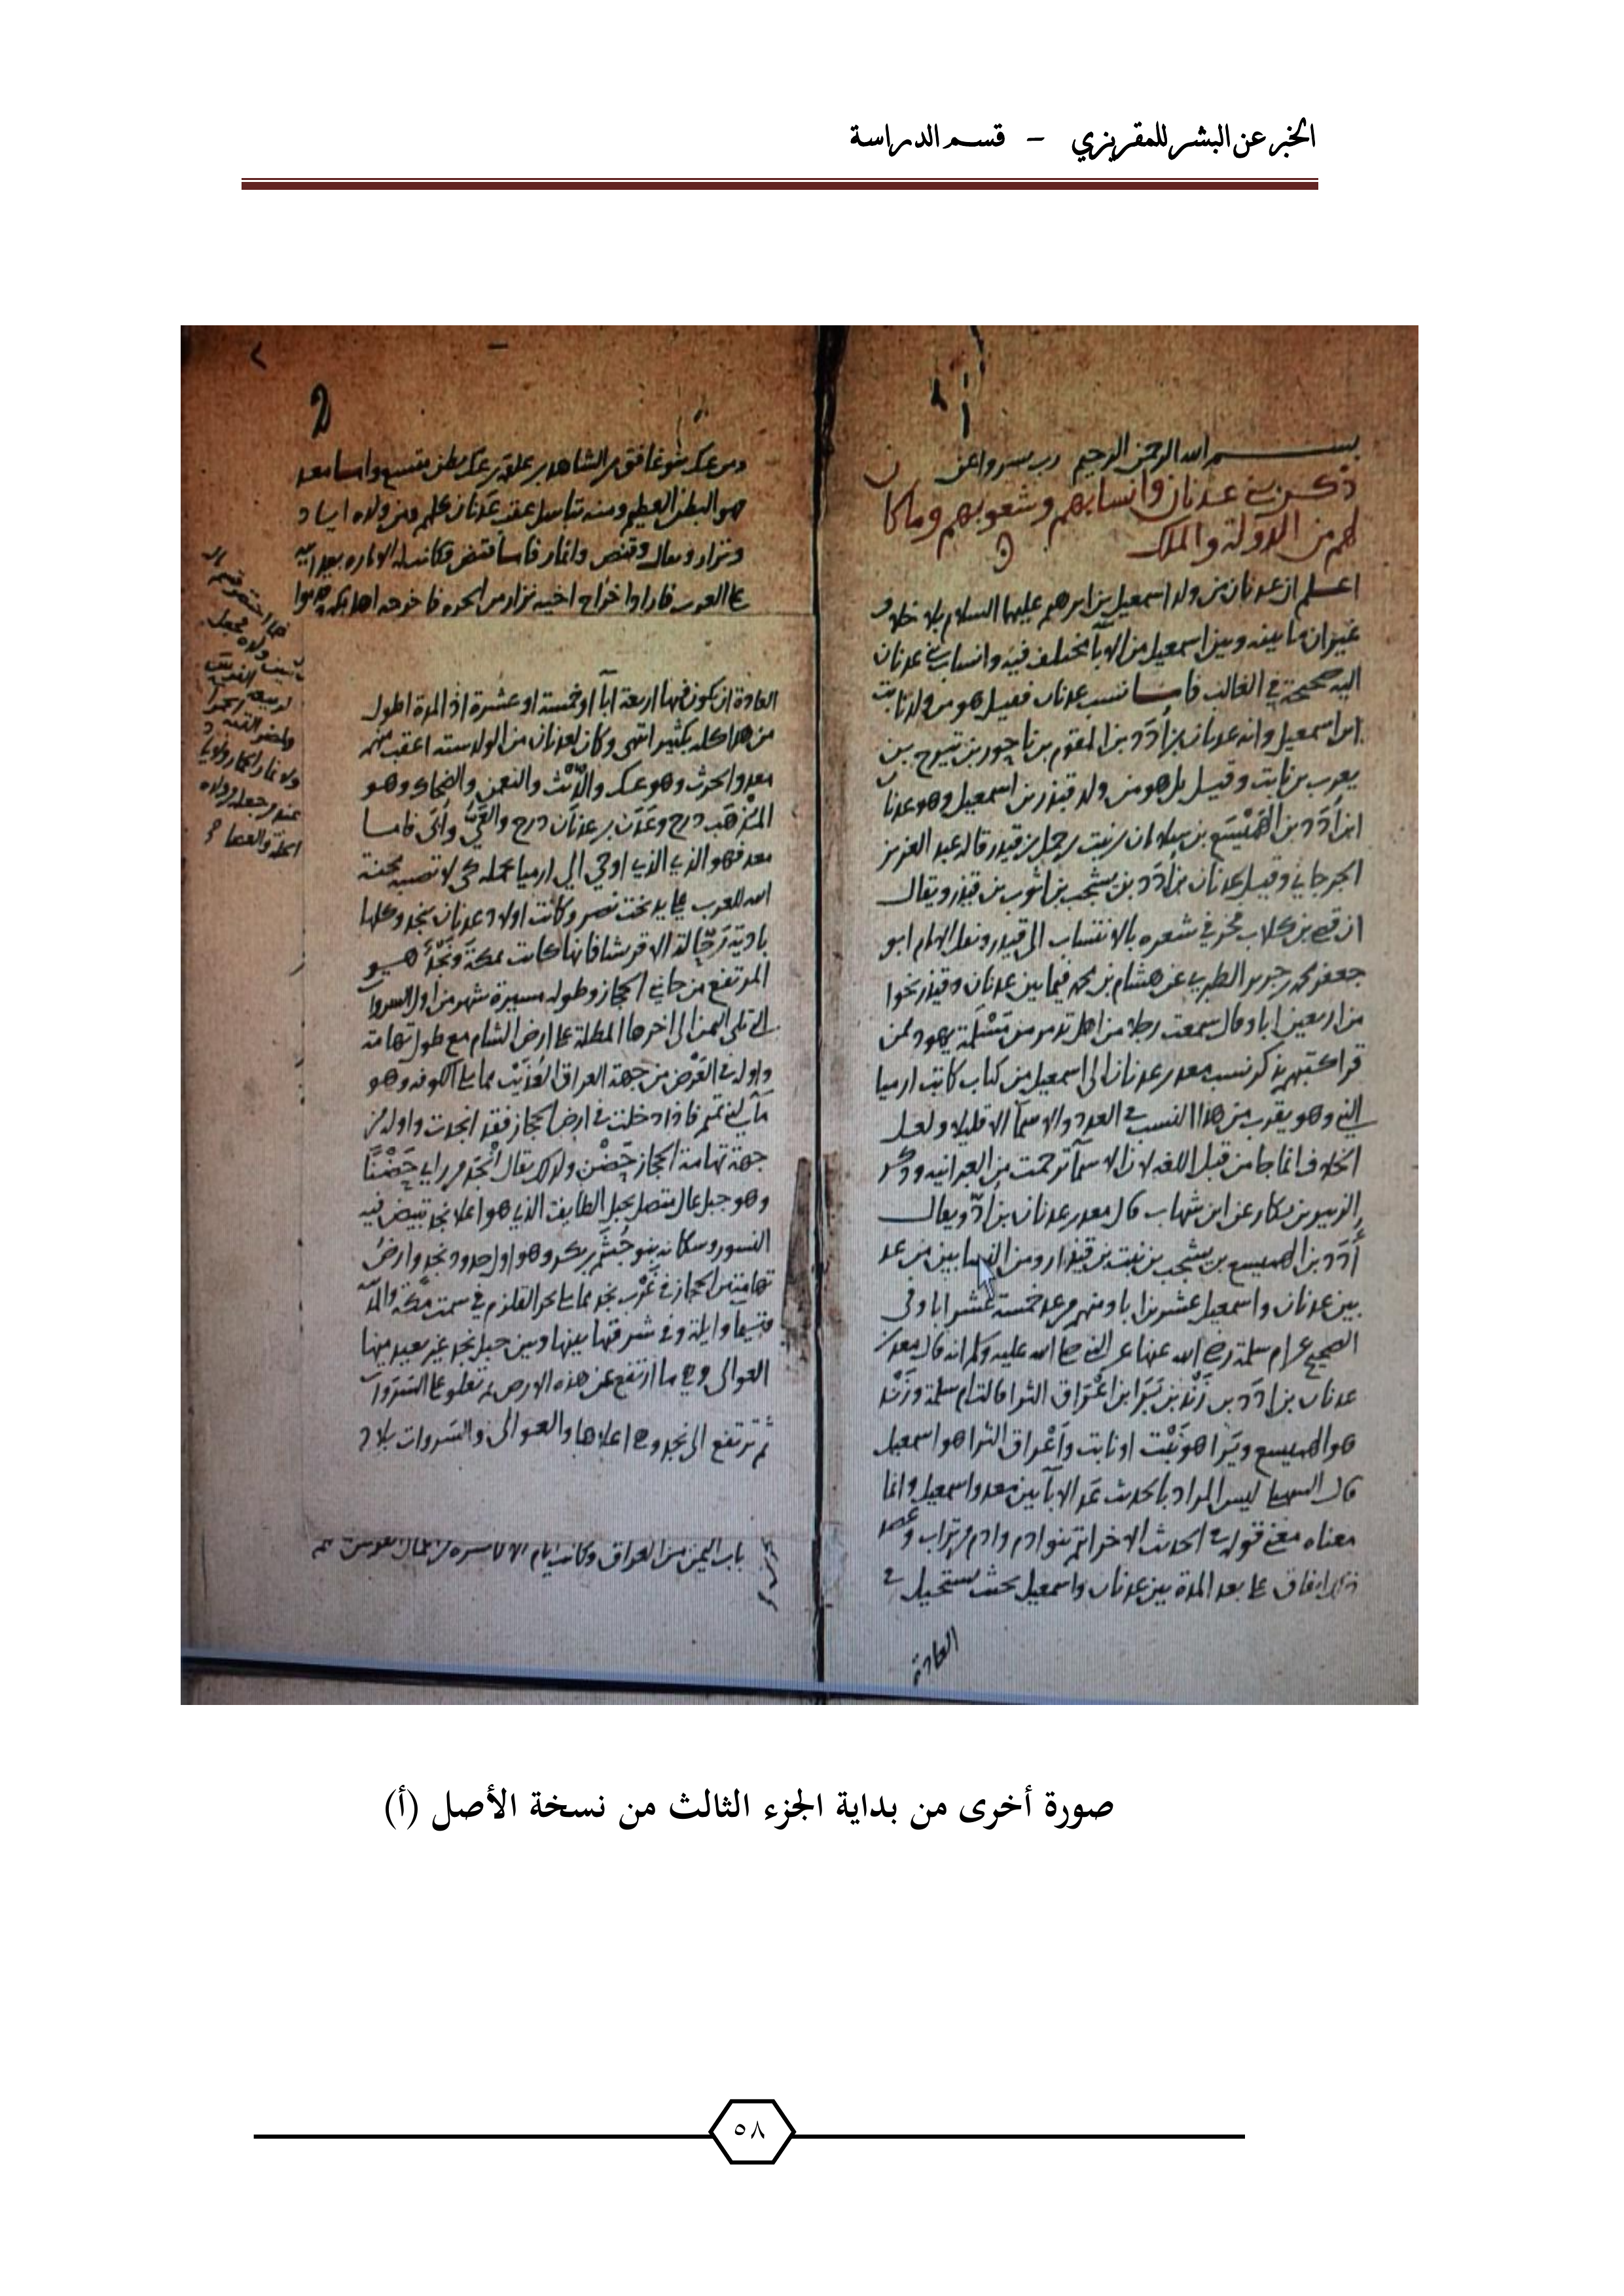 الخبر عن البشر للمقريزي – قسم الدراسة
بسم الله الرحمن الرحيم رب يسر واعن
ذكر بني عدنان وانسابهم وشعوبهم وما كان
لهم من الدولة والملك
اعلم ان عدنان من ولد اسمعيل بن ابرهيم عليهما السلام بلا خلاف
غير ان ما بينه وبين اسمعيل من الابآ مختلف فيه وانساب بني عدنان
اليه صحيحة في الغالب فاما نسب عدنان فقيل هو من ولد نابت
ابن اسمعيل وانه عدنان بن أدد بن المقوم بن ناحور بن تيرح بن
يعرب بن نابت وقيل بل هو من ولد قيذر بن اسمعيل وهو عدنان
ابن أدد بن الهميسع بن سلامان بن نبت بن حمل بن قيذر قاله عبد العزيز
الجرجاني وقيل عدنان بن أدد بن يشجب بن ايوب بن قيذر ويقال
ان قصي بن كلاب في شعره بالانتساب الى قيذر ونقل الامام ابو
جعفر محمد بن جرير الطبري عن هشام بن محمد فيما بين عدنان وقيذر نحوا
من اربعين ابا وقال سمعت رجلا من اهل تدمر من مسلمة يهود ممن
قرا كتبهم يذكر نسب معد بن عدنان الى اسمعيل من كتاب كاتب ارميا
النبي وهو يقرب من هذا النسب في العدد والاسمآ الا قليلا ولعل
الخلاف انما جا من قبل اللغة لان الاسمآ ترجمت من العبرانيه وذكر
الزبير بن بكار عن ابن شهاب قال معد بن عدنان بن أد ويقال
أدد بن الهميسع بن يشجب بن نبت بن قيذار ومن النسابين من عد
بين عدنان واسمعيل عشرين ابا ومنهم من عد خمسة عشر ابا وفي
الصحيح عن ام سلمة رضي الله عنها عن النبي صلى الله عليه وسلم انه قال معد بن
عدنان بن ادد بن زند بن يرا بن اعراق الثرا قالت ام سلمة وزند
هو الهميسع ويرا هو نبت او نابت وأعراق الثرا هو اسمعيل
قال السهيلي ليس المراد بالحديث عد الابآ بين معد واسمعيل وانما
معناه معنى قوله في الحديث الاخر انتم بنو ادم وادم من تراب
اتفاق على بعد المدة بين عدنان واسمعيل بحيث يستحيل في
العادة
2
ومن عك بنو غافق بن الشاهد بن علقة بن عك بطن متسع واما معد
هو البطن العظيم ومنه تناسل عقب عدنان كلهم ومن ولده اياد
ونزار وقنص وانمار فاما قنص فكانت له الاماره بعد ابيه
على العرب فاراد اخراج اخيه نزار من الحرم فاخرجه اهل مكة
العادة ان يكون فيها اربعة ابآ او خمسة او عشرة اذ المدة اطول
من هذا كله بكثير انتهى وكان لعدنان من الولد ستة اعقب منهم
معد والحرث وهو عك والديث والنعمن والضحاك وهو
المذهب درج وعدن بن عدنان درج وأبى فاما
معد فهو الذي اوحى الى ارميا بحمله كي لا تصيبه محنة
الله للعرب على يد بخت نصر وكانت اولاد عدنان بنجد وكلها
بادية رحالة الا قريشا فانها كانت بمكة ونجد هو
المرتفع من جانبي الحجاز وطوله مسيرة شهر من اول السروات
التي تلي اليمن الى اخرها المطلة على ارض الشام مع طول تهامة
واوله في العرض من جهة العراق العذيب مما يلي الكوفه وهو
مآ لبني تميم فاذا دخلت في ارض الحجاز فقد انجدت واوله من
جهة تهامة الحجاز حضن ولذلك يقال انجد من راى حضنا
وهو جبل عال متصل بجبل الطايف الذي هو اعلا نجد تبيض فيه
النسور وسكانه بنو جشم بن بكر وهو اول حدود نجد وارض
تهامة من الحجاز في غرب نجد مما يلي بحر القلزم في سمت مكة
وتيمآ وايلة وفي شرقها بينها وبين جبل نجد غير بعيد منها
العوالي وهي ما ارتفع عن هذه الارض ثم تعلو على السروات
ثم ترتفع الى نجد وهي اعلاها والعوالي والسروات بلاد
باب اليمن من العراق وكانت ايام
صورة أخرى من بداية الجزء الثالث من نسخة الأصل (أ)
٥٨